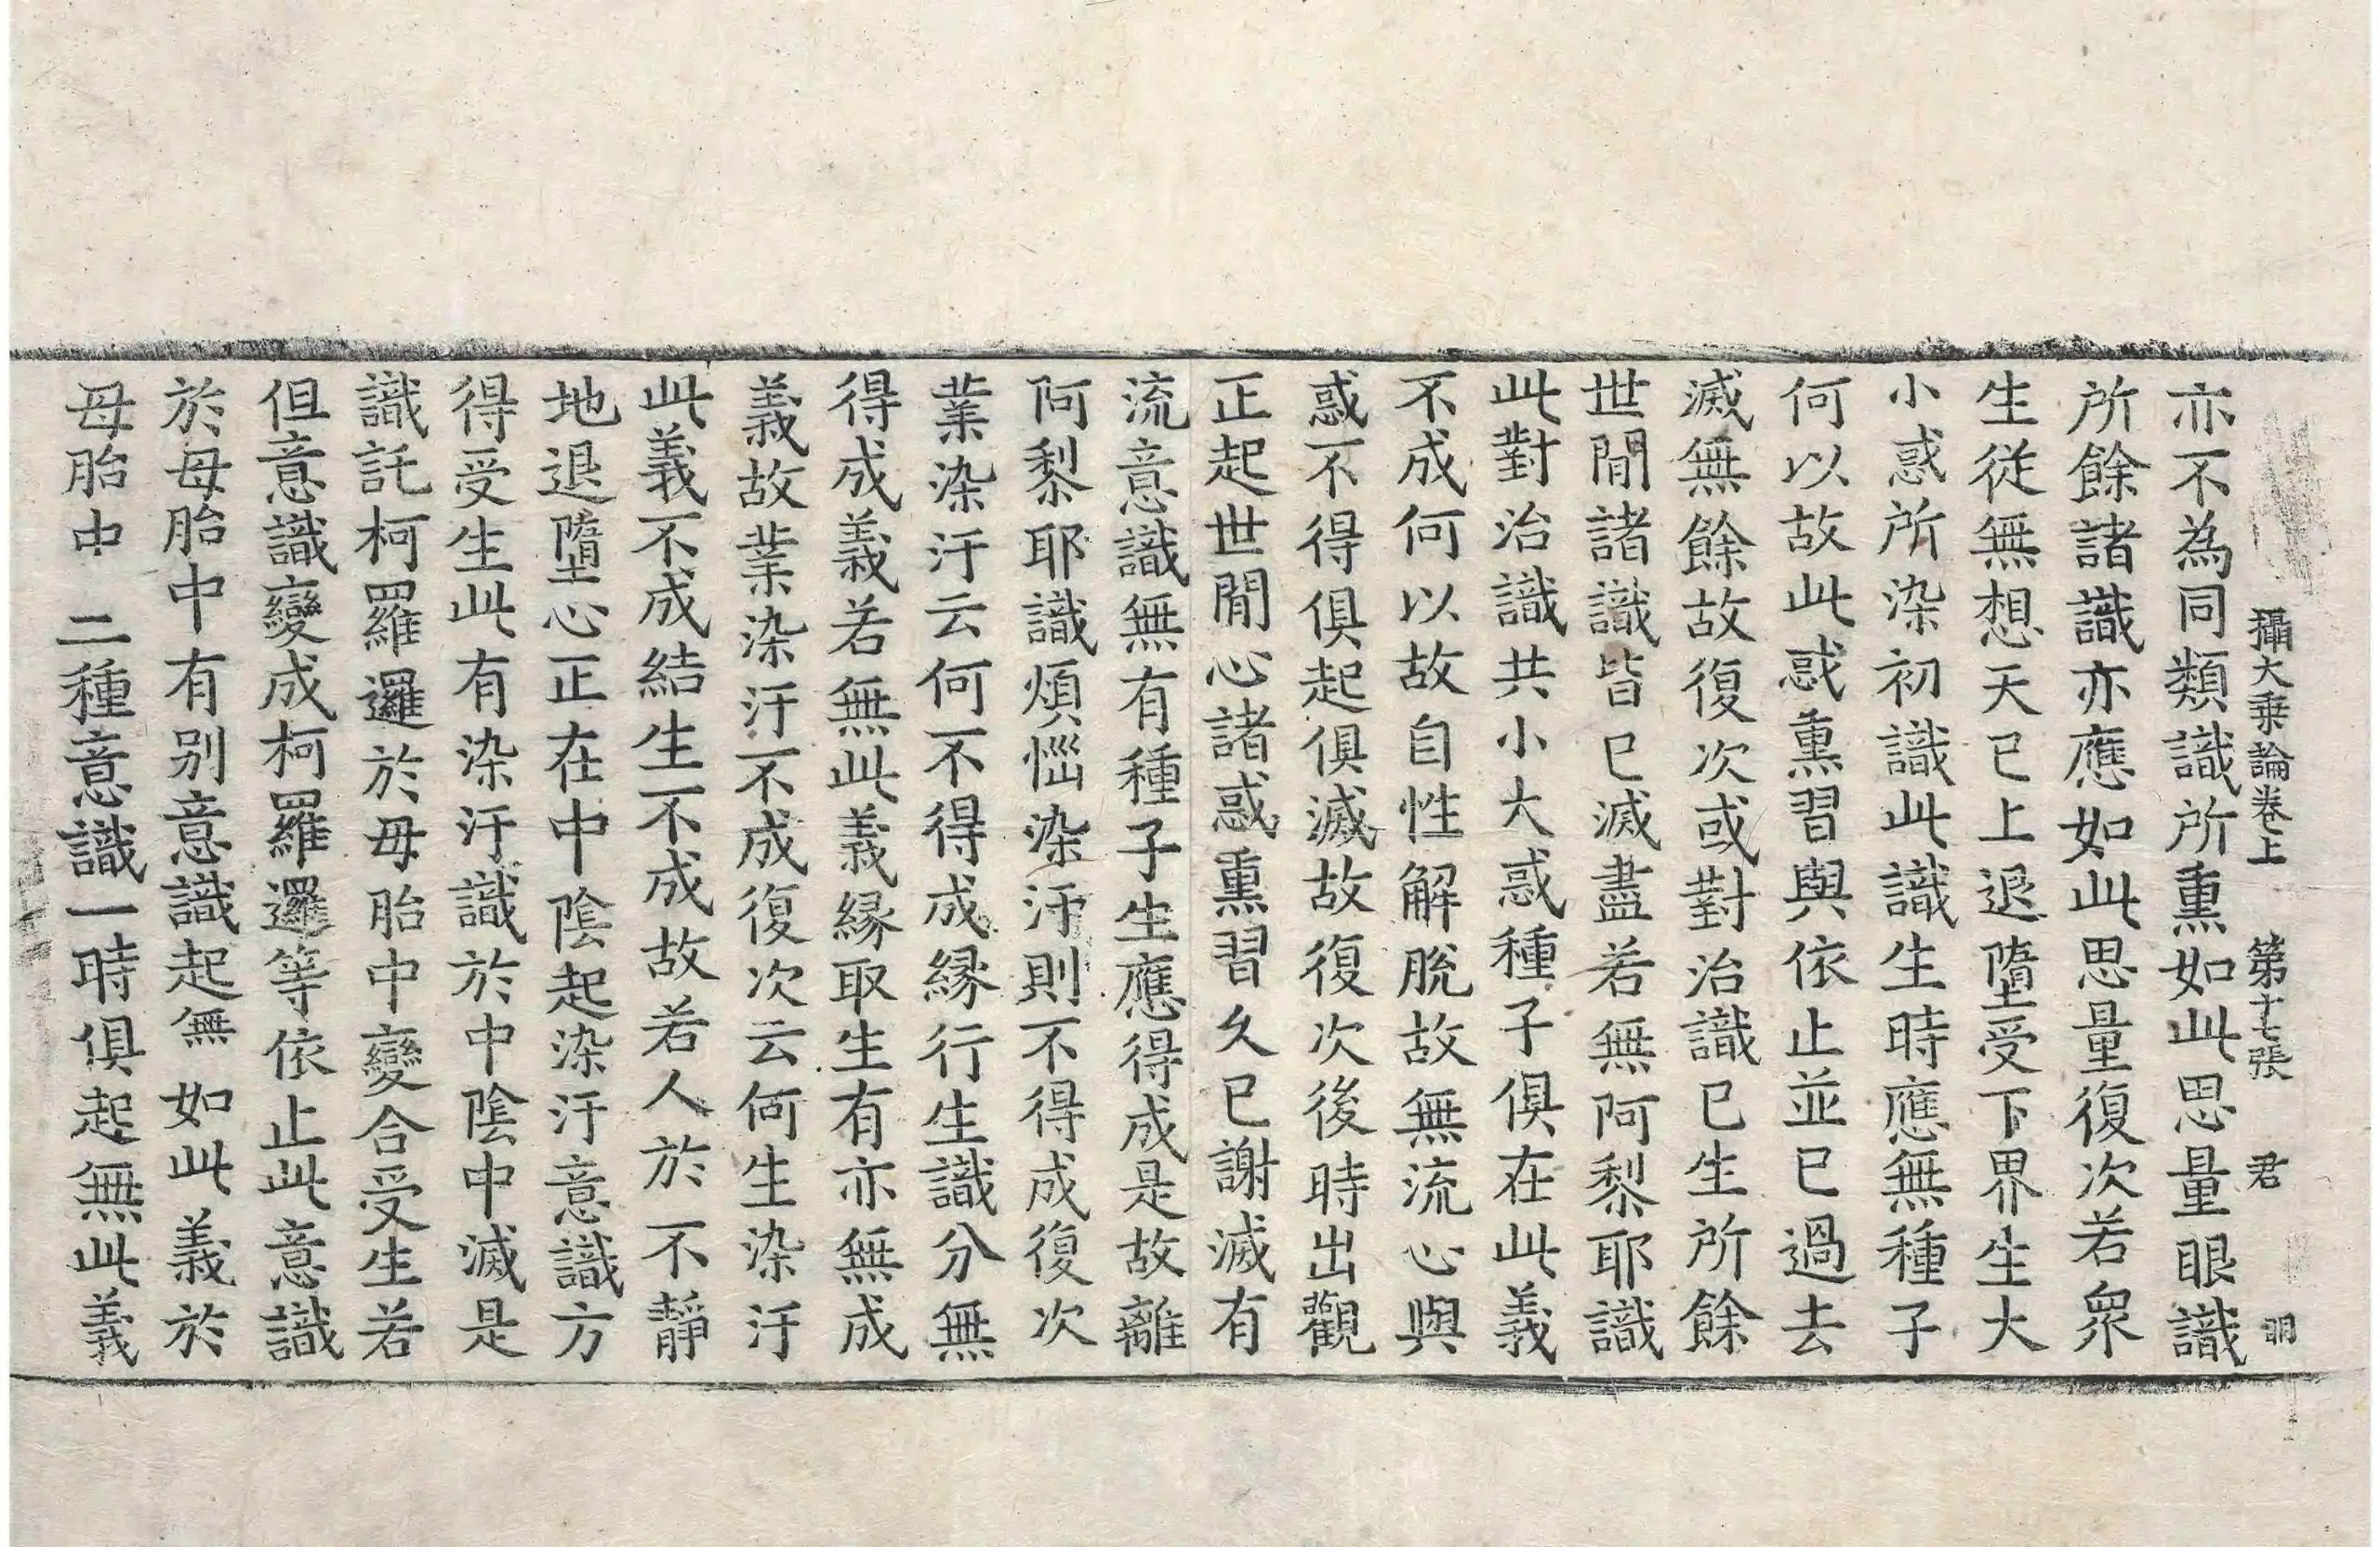 攝大乗論卷上　第十七張　君　明
亦不為同類識所熏如此思量眼識
所餘諸識亦應如此思量復次若衆
生從無想天已上退墮受下界生大
小惑所染初識此識生時應無種子
何以故此惑熏習與依止並已過去
滅無餘故復次或對治識已生所餘
世閒諸識皆已滅盡若無阿黎耶識
此對治識共小大惑種子俱在此義
不成何以故自性解脫故無流心與
惑不得俱起俱滅故復次後時出觀
正起世閒心諸惑熏習久已謝滅有
流意識無有種子生應得成是故離
阿黎耶識煩惱染汙則不得成復次
業染汙云何不得成緣行生識分無
得成義若無此義緣取生有亦無成
義故業染汙不成復次云何生染汙
此義不成結生不成故若人於不靜
地退墮心正在中陰起染汙意識方
得受生此有染汙識於中陰中滅是
識託柯羅邏於母胎中變合受生若
但意識變成柯羅邏等依止此意識
於母胎中有別意識起無如此義於
母胎中二種意識一時俱起無此義